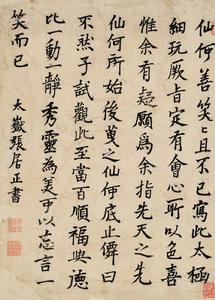 仙何善笑笑且不已寫此太極
細玩厥旨定有會心所以色喜
惟余有疑願為余指先天之先
仙何所始後叟之仙何底止僊曰
不然子試觀此至當百順福與德
比一動一靜秀靈為美中以忘言一
笑而已
太嶽張居正書